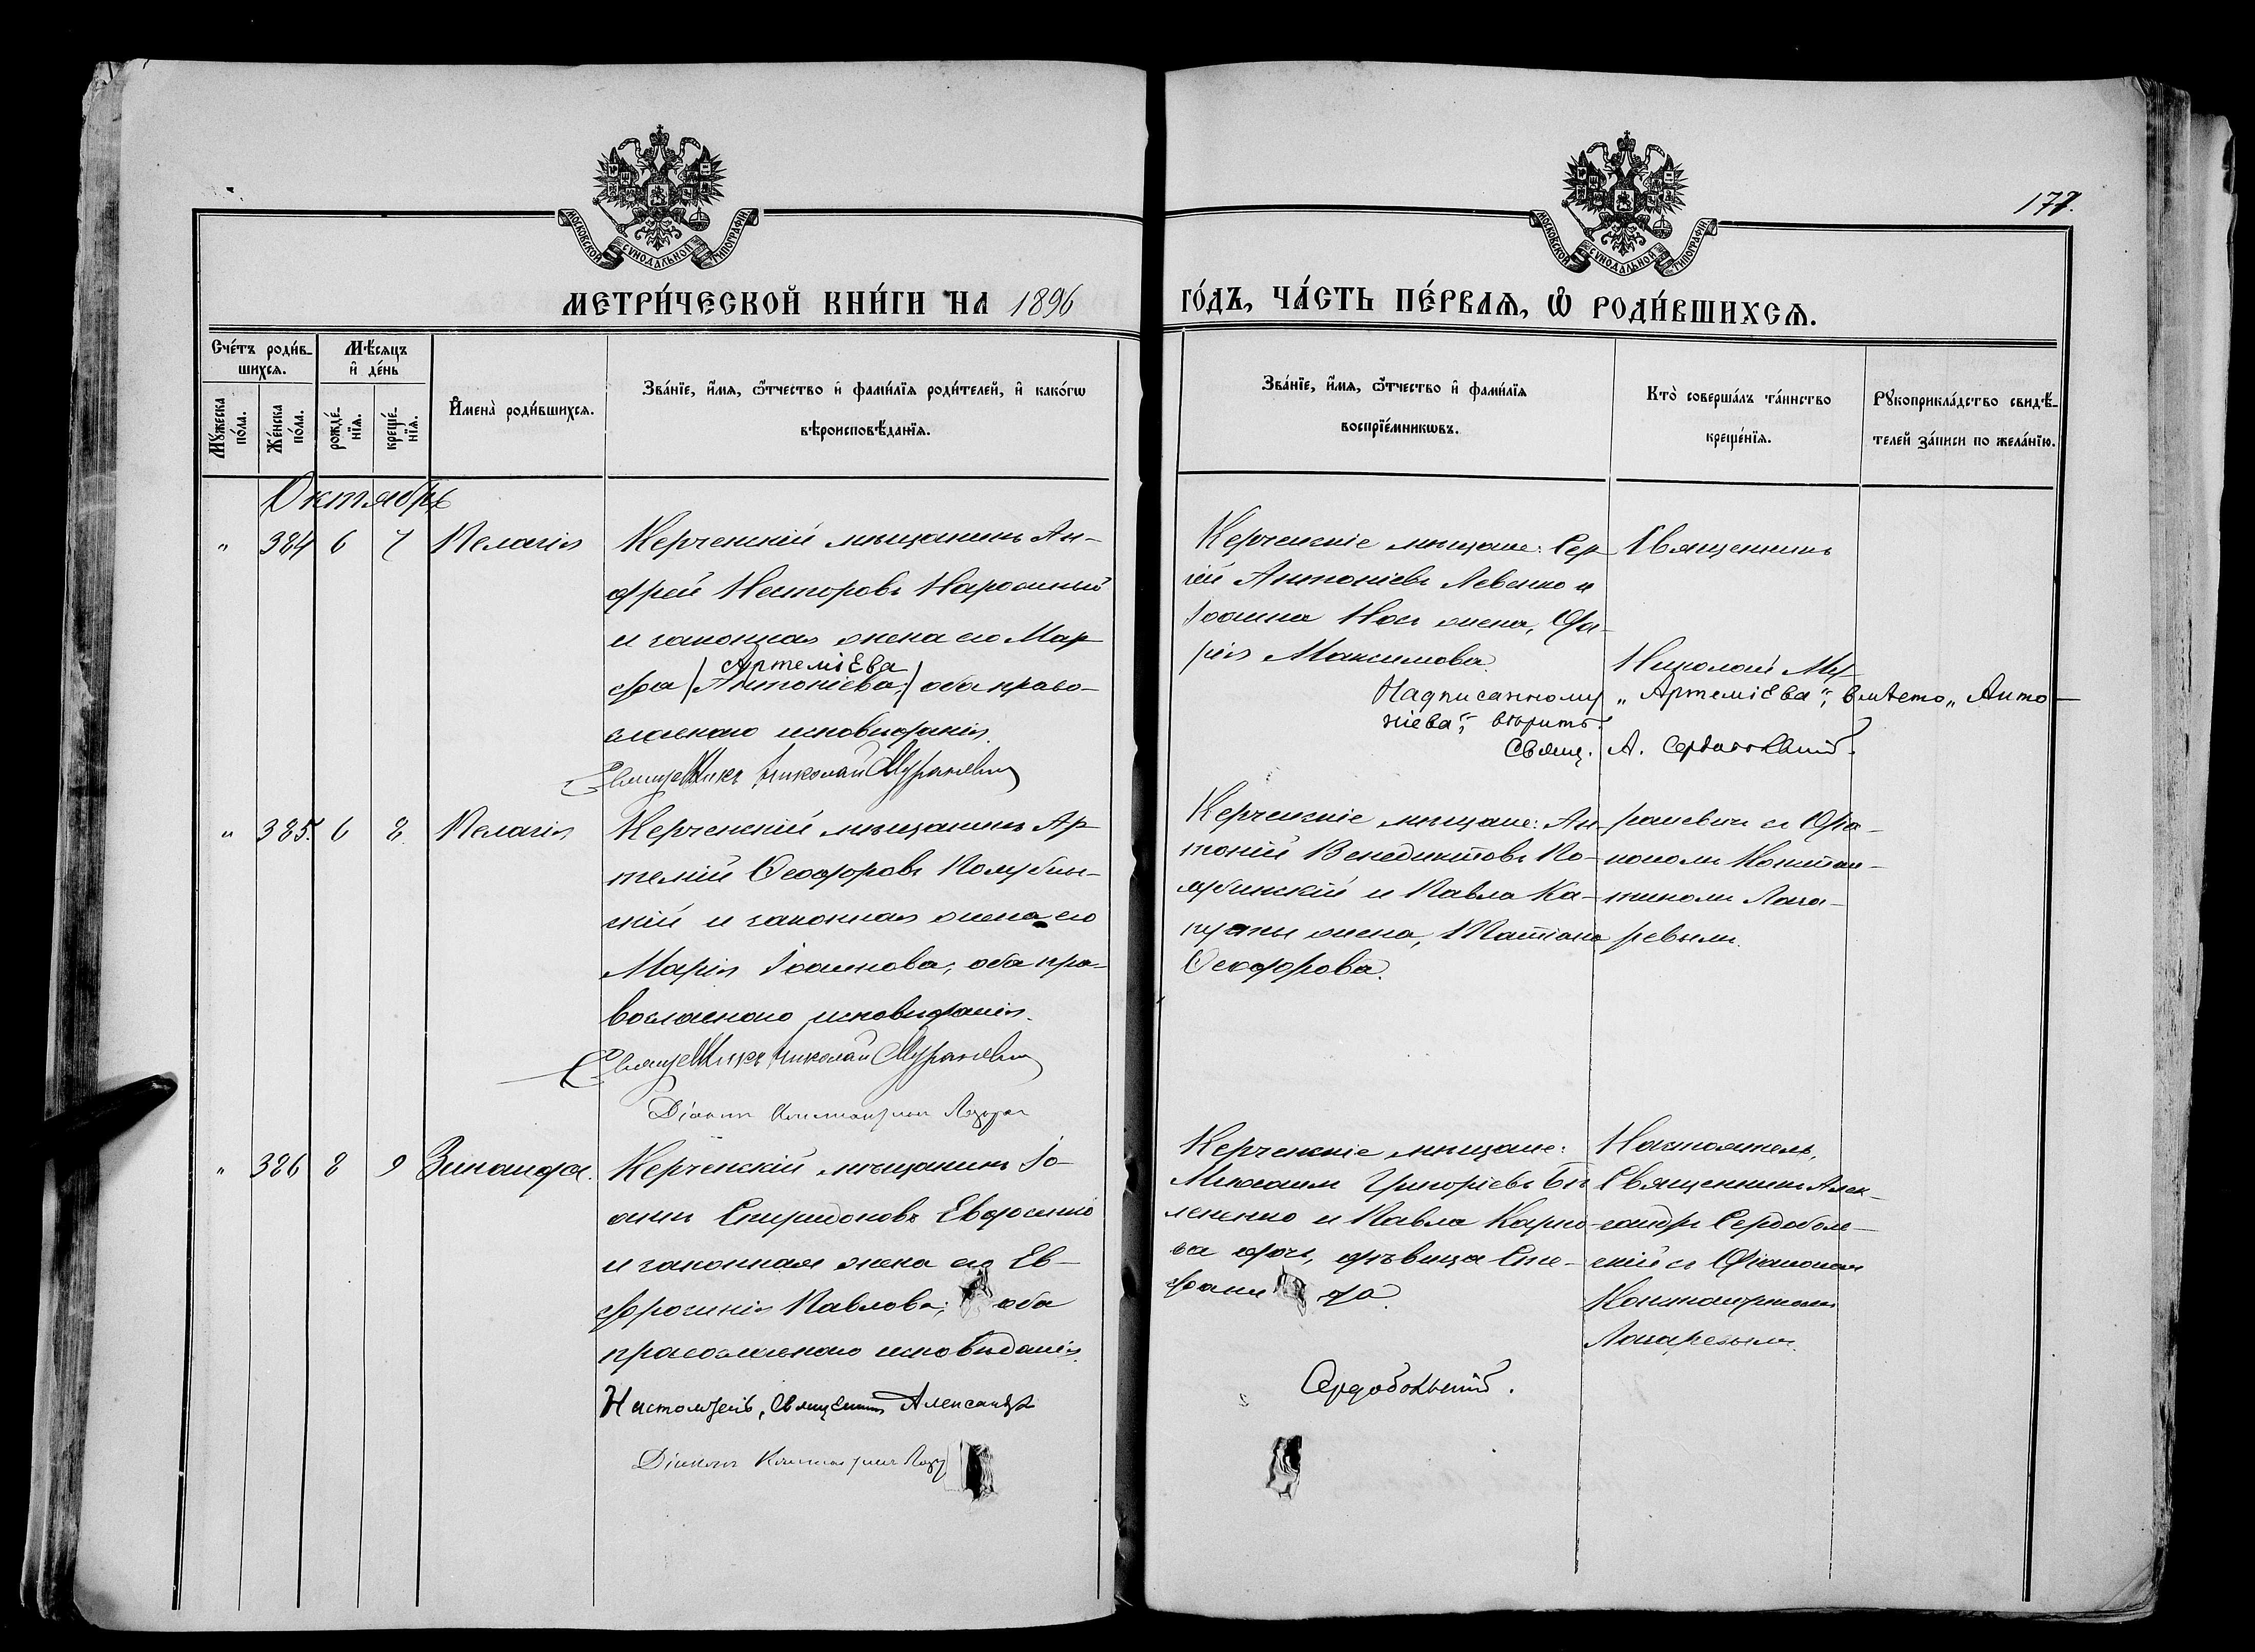 177.
МОСКОВСКОЙ СѴНОДАЛЬНОЙ ТИПОГРАФІИ
МОСКОВСКОЙ СѴНОДАЛЬНОЙ ТИПОГРАФІИ
МЕТРИ́ЧЕСКОЙ КНИ́ГИ НА 1896
ГО́ДЪ, ЧА́СТЬ ПЕ́РВАѦ, Ѡ҆ РОДИ́ВШИХСѦ.
Сче́тъ роди́в-
шихсѧ.
Мꙋ́жеска
по́ла.
Же́нска
по́ла.
Мѣ́сѧцъ
и҆ де́нь
рожде́-
нїѧ.
креще́-
нїѧ.
И҆мена̀ роди́вшихсѧ.
Зва́нїе, и҆́мѧ, ѻ҆́тчество и҆ фами́лїѧ роди́телей, и҆ како́гѡ
вѣроисповѣ́данїѧ.
Зва́нїе, и҆́мѧ, ѻ҆́тчество и҆ фами́лїѧ
воспрїе́мникѡвъ.
Кто̀ соверша́лъ та́инство
креще́нїѧ.
Рꙋкоприкла́дство свидѣ́-
телей за́писи по жела́нїю.
Октябрь
" 384 6 7 Пелагія
Керченскій мѣщанинъ Ан-
дрей Несторовъ Нарожный
и законная жена его Мар-
Артеміева
фа (Антоніева;) оба право-
славнаго исповѣданія.
Священникъ Николай Мураневичъ
Керченскіе мѣщане: Сер-
гій Антоніевъ Левенко и
Іоанна Нос жена, Да-
рія Максимова.
Священникъ
Николай Му-
Надписанному „Артеміева", вмѣсто „Анто-
ніева", вѣрить.
Свящ. А. Сердобольскій.
" 385. 6 8. Пелагія
Керченскій мѣщанинъ Ар-
темій Ѳеодоровъ Голубин-
скій и законная жена его
Марія Іоаннова; оба пра-
вославнаго исповѣданія.
Священникъ Николай Мураневичъ
Діаконъ Константинъ Лазарев
Керченскіе мѣщане: Ан-
тоній Венедиктовъ Го-
лубинскій и Павла Ка-
пусты жена, Татіана
Ѳеодорова.
раневичъ съ Діа-
кономъ Констан-
тиномъ Лаза-
ревымъ.
" 386 8 9 Зинаида.
Керченскій мѣщанинъ Іо-
аннъ Спиридоновъ Евдосенко
и законная жена его Ев-
фросинія Павлова; оба
православнаго исповѣданія.
Настоятель, Священникъ Александръ
Сердобольскій.
Діаконъ Константинъ Лазар
Керченскіе мѣщане:
Михаилъ Григорьевъ Бѣ-
ленко и Павла Карпо-
ва дочь, дѣвица Сте-
фани да.
Настоятель,
Священникъ Алек-
сандръ Сердоболь-
скій съ Діакономъ
Константиномъ
Лазаревымъ.